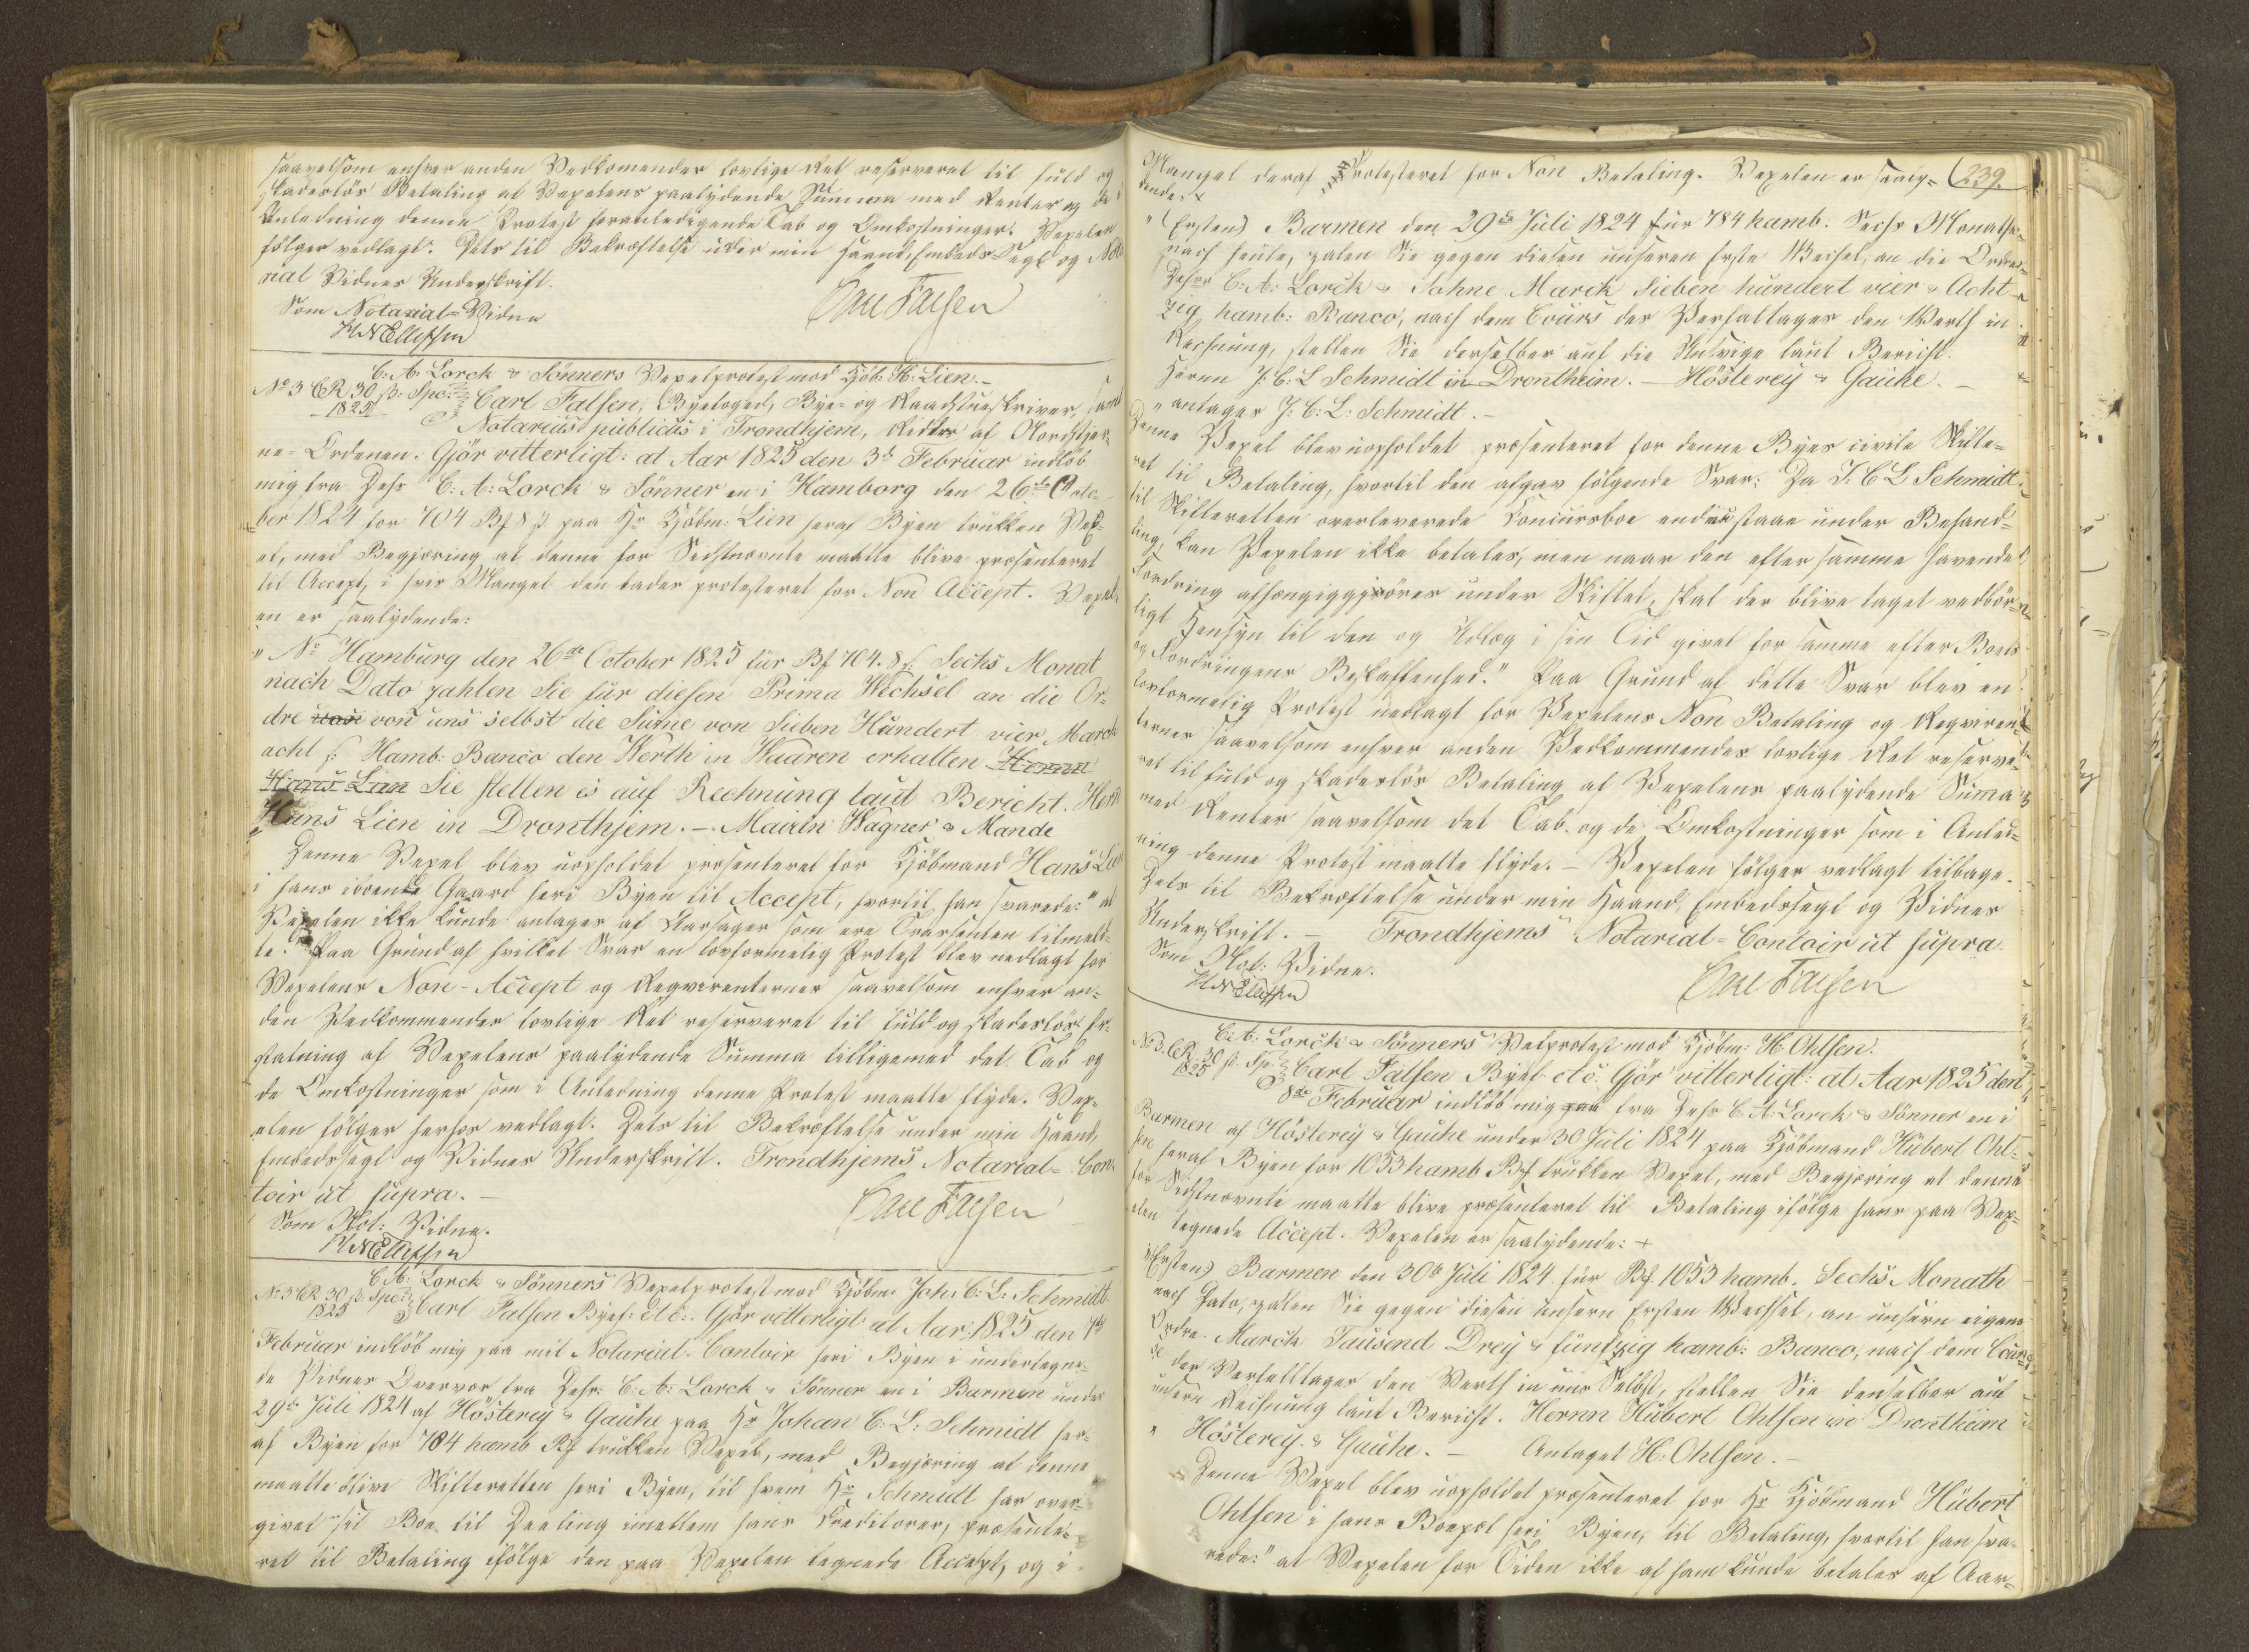 saavelsom enhver anden Vedkomendes lovlige Ret reserveret til fuld og
skadeslös Betaling af Vexelens paalydende Summa med Renter og de i
Anledning denne Protest foranledigende Tab og Omkostninger. Vexelen
fölger vedlagt. Dets til Bekræftelse under min Haand, Embeds-Segl og Nota
rial Vidnes Underskrift.
Carl Falsen
Som Notarial-Vidne
H N Ellefsen
C: A: Lorck & Sönners Vexelprotest mod Kjöb: H: Lien.-
No 3 CR 30 ß. Spec:
1825
Carl Falsen, Byefoged, Bye- og Raadstueskriver, samt
Notarius publicus i Trondhjem, Ridder af Nordstjer-
ne-Ordenen. Gjör vitterligt: at Aar 1825 den 3de Februar indlöb
mig fra Dhrr C: A: Lorck & Sönner en i Hamborg den 26de Octo-
ber 1824 for 704 Bf 8 ß paa Hr Kjöbm: Lien heraf Byen trukken Vex-
el, med Begjæring at denne for Sidstnævnte maatte blive præsenteret
til Accept, i hvis Mangel den lades protesteret for Non Accept. Vexel-
en er saalydende:
" No Hamburg den 26de October 1825 für Bf 704. 8 ß. Sechs Monat
nach Dato zahlen Sie für diesen Prima Wechsel an die Or-
dre von von uns selbst die Sume von Sieben Hundert vier March
acht ß. Hamb: Banco den Werth in Waaren erhalten Herrn
Hans Lien Sie stellen es auf Rechnung laut Bericht. Herrn
Hans Lien in Dronthjem. - Maaren Wagner & Mande
Denne Vexel blev uopholdet præsenteret for Kjöbmand Hans Lien
i hans iboende Gaard heri Byen til Accept, hvortil han svarede: "at
Vexelen ikke kunde antages af Aarsager som ere Trassenten tilmeld-
te." Paa Grund af hvilket Svar en lovformelig Protest blev nedlagt for
Vexelens Non-Accept og Reqvirenternes saavelsom enhver an-
den Vedkommendes lovlige Ret reserveret til fuld og skadeslös Er-
statning af Vexelens paalydende Summa tilligemed det Tab og
de Omkostninger som i Anledning denne Protest maatte flyde. Vex-
elen fölger herhos vedlagt. Dets til Bekræftelse under min Haand,
Embedssegl og Vidnes Underskrift. Trondhjems Notarial-Con-
toir ut supra.-
Carl Falsen
Som Not: Vidne.
H N Ellefsen
C A: Lorck & Sönners Vexelprotest mod Kjöbm: Joh: C: L: Schmidt.
No 3 CR 30 ß. Spec:
1825
Carl Falsen Byef: etc:. Gjör vitterligt: at Aar 1825 den 7de
Februar indlöb mig paa mit Notarial-Contoir heri Byen i undertegne-
de Vidnes Overvær fra Dhrr: C: A: Lorck & Sönner en i Barmen under
29de Juli 1824 af Hösterey & Gauhe paa Hr Johan C: L: Schmidt her-
af Byen for 784 hamb Bf trukken Vexel, med Begjæring at denne
maatte blive Skifteretten heri Byen, til hvem Hr Schmidt har over-
givet sit Boe til Deeling imellem hans Kreditorer, præsente-
ret til Betaling ifölge den paa Vexelen tegnede Accept, og i
239.
Mangel deraf Protesteret for Non Betaling. Vexelen er saaly-
dende:
" (Ersten) Barmen den 29de Juli 1824 für 784 hamb: Sechs Monathe
nach heute, zalen Sie gegen diesen unseren Erste Wechsel, an die Ordre
Dehrr C: A: Lorck & Sohne Marck Sieben hundert vier & Acht-
zig hamb: Banco, nach dem Cours des Verfalltages den Werth in
Rechnung, stellen Sie derselber auf die Unsrige laut Bericht.
Herrn J: C: L Schmidt in Drontheim. - Hösterey & Gauhe. -
" antages J: C: L: Schmidt. -
Denne Vexel blev uopholdet præsenteret for denne Byes civile Skifte-
ret til Betaling, hvortil den afgav fölgende Svar: Da J. C L Schmidt
til Skifteretten overleverede Concursboe endnu staae under Behand-
ling, kan Vexelen ikke betales, men naar den efter samme havende
Fordring afhængiggjöres under Skiftet, skal der blive taget vedbör-
ligt Hensyn til den og Udlæg i sin Tid givet for samme efter Boets
og Fordringens Beskaffenhed." Paa Grund af dette Svar blev en
lovformelig Protest nedlagt for Vexelens Non Betaling og Reqviren-
ternes saavelsom enhver anden Vedkommendes lovlige Ret reserve-
ret til fuld og skadeslös Betaling af Vexelens paalydende Suma
med Renter saavelsom det Tab og de Omkostninger som i Anled-
ning denne Protest maatte flyde. - Vexelen fölger vedlagt tilbage.
Dets til Bekræftelse under min Haand, Embedssegl og Vidnes
Underskrift. - Trondhjems Notarial-Contoir ut supra.
Carl Falsen
Som Not: Vidne.
H N Ellefsen
C: A: Lorck & Sönners Vexelprotest mod Kjöbm: H: Ohlsen.
No 3. CR. 30 ß. Sp
1825
Carl Falsen Byef etc: Gjör vitterligt: at Aar 1825 den
8de Februar indlöb mig paa fra Dehr C: A: Lorck & Sönner en i
Barmen af Hösterey & Gauhe under 30 Juli 1824 paa Kjöbmand Hübert Ohl-
sen heraf Byen for 1053 hamb Bf trukken Vexel, med Begjæring at denne
for Sidstnævnte maatte blive præsenteret til Betaling ifölge hans paa Vex-
elen tegnede Accept. Vexelen er saalydende: +
" (Ersten) Barmen den 30de Juli 1824 für Bf. 1053 hamb. Sechs Monath
nach Dato, zalen Sie gegen diesen unsern Ersten Wechsel, an unsern eigene
Ordre. March Tausend Drey & fünfzig hamb: Banco, nach dem Cour-
se der Verfalltages den Werth in uns Selbst, stellen Sie denselber auf
unsern Rechnung laut Bericht. Herrn Hübert Ohlsen in Drontheim
" Hösterey & Gauhe. - Antaget H: Ohlsen. -
Denne Vexel blev uopholdet præsenteret for Hr Kjöbmand Hübert
Ohlsen i hans Boepæl heri Byen, til Betaling, hvortil han sva-
rede: "at Vexelen for Tiden ikke af ham kunde betales af Aar-